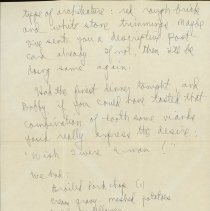 type of architecture: red rough brick
and white stone trimmings. Maybe
I've sent you a descriptive post
card already. If not, then I'll be
doing same again.
Had the finest dinner tonight and
Bobby if you could have tasted that
combination of tooth some viands
you'd really express the desire:
"Wish I were a-man!"
We had:
Broiled Pork chops (1)
cream gravy, mashed potatoes